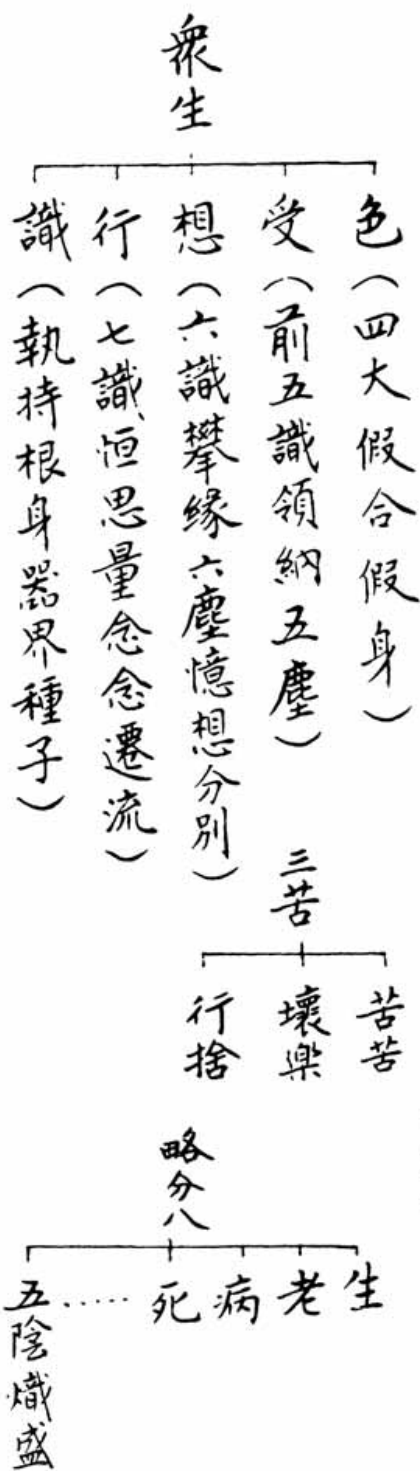 眾生
色（四大假合假身）
受（前五識領納五塵）
想（六識攀緣六塵憶想分別）
行（七識恒思量念念遷流）
識（執持根身器界種子）
三苦
苦苦
壞樂
行捨
略分八
生
老
病
死
……
五陰熾盛